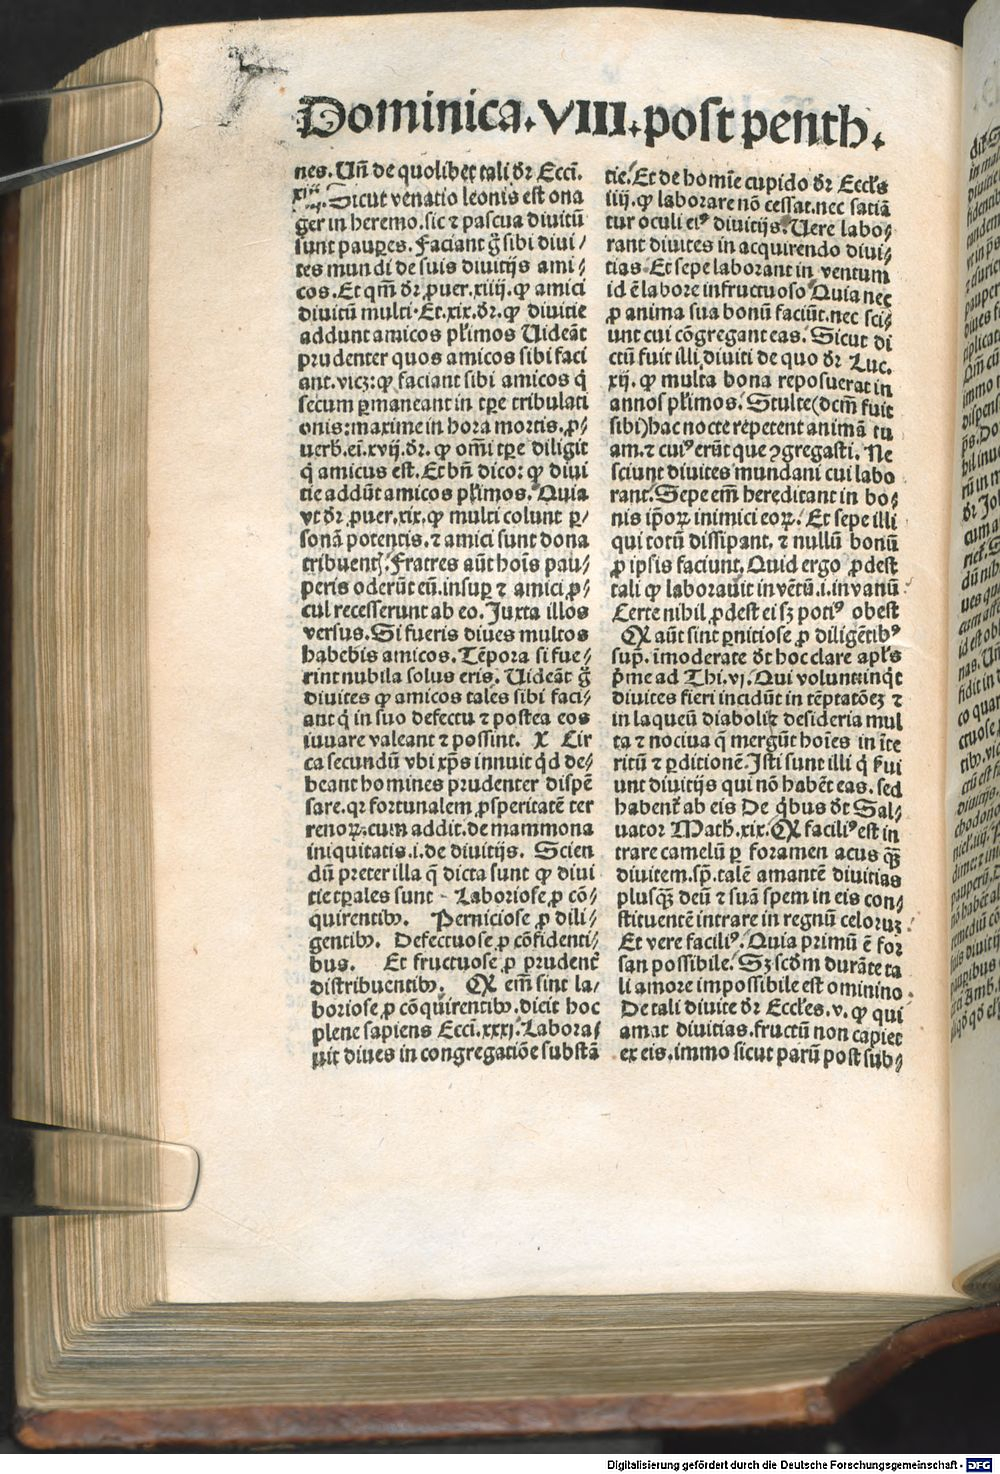 Dominica.VIII.post penth.
nes. Uñ de quolibet tali dr̄ Ecci̅.
xiij. Sicut venatio leonis est ona
ger in heremo. sic ⁊ pascua diuitū
sunt paupeꝛes. Faciant g̊ sibi diui/
tes mundi de suis diuitijs ami/
cos. Et qm̄ dr̄ ꝓuer.xiiij. ꝙ amici
diuitū multi. Et.xix.dr̄. ꝙ diuitie
addunt amicos pl̄imos Uideāt
prudenter quos amicos sibi faci
ant. vicꝫ: ꝙ faciant sibi amicos q̄
secum ꝑmaneant in tꝑe tribulati
onis: maxime in hora mortis. ꝓ/
uerb. ei.xvij. dr̄. ꝙ om̄i tꝑe diligit
q̄ amicus est. Et bn̄ dico: ꝙ diui
tie addūt amicos pl̄imos. Quia
vt dr̄ ꝓuer.xix. ꝙ multi colunt ꝑ/
sonā potentis. ⁊ amici sunt dona
tribuentꝭ. Fratres aūt hoīs pau/
peris oderūt eū. insuꝑ ⁊ amici ꝓ/
cul recesserunt ab eo. Juxta illos
versus. Si fueris diues multos
habebis amicos. Tēpora si fue/
rint nubila solus eris. Uideāt g̊
diuites ꝙ amicos tales sibi faci/
ant q̄ in suo defectu ⁊ postea eos
iuuare valeant ⁊ possint. X Cir
ca secundū vbi xp̄s innuit q̄d de/
beant homines prudenter dispē
sare. qꝛ fortunalem ꝓsperitatē ter
renoꝝ. cum addit. de mammona
iniquitatis .i. de diuitijs. Scien
dū preter illa q̄ dicta sunt ꝙ diui
tie tꝑales sunt - Laboriose ꝓ cō/
quirentibꝰ. Perniciose ꝓ dili/
gentibꝰ. Defectuose ꝓ cōfidenti/
bus. Et fructuose ꝓ prudent̄
distribuentibꝰ. Qꝙ em̄ sint la/
boriose ꝓ cōquirentibꝰ. dicit hoc
plene sapiens Ecci̅.xxxi. Labora/
uit diues in congregatiōe substā
tie. Et de homīe cupido dr̄ Eccl̄s
iiij. ꝙ laborare nō cessat. nec satiā
tur oculi eiꝰ diuitijs. Uere labo/
rant diuites in acquirendo diui/
tias. Et sepe laborant in ventum
id ē labore infructuoso Quia nec
ꝓ anima sua bonū faciūt. nec sci/
unt cui cōgregant eas. Sicut di
ctū fuit illi diuiti de quo dr̄ Luc.
xij. ꝙ multa bona reposuerat in
annos pl̄imos. Stulte (dcm̄ fuit
sibi) hac nocte repetent animā tu
am. ⁊ cuiꝰ erūt que ꝯgregasti. Ne
sciunt diuites mundani cui labo
rant. Sepe em̄ hereditant in bo/
nis ip̄oꝝ inimici eoꝝ. Et sepe illi
qui totū dissipant. ⁊ nullū bonū
ꝓ ipsis faciunt. Quid ergo ꝓdest
tali ꝙ laborauit in vētū .i. in vanū
Certe nihil ꝓdest ei sꝫ potiꝰ obest
Qꝙ aūt sint ꝑnitiose ꝓ diligētibꝰ
sup̄. imoderate dr̄ hoc clare apl̄s
p̄me ad Thi.vj. Qui volunt inq̄t
diuites fieri incidūt in tēptatōeꝫ ⁊
in laqueū diaboli ⁊ desideria mul
ta ⁊ nociua q̄ mergūt hoīes in īte
ritū ⁊ ꝑditionē. Isti sunt illi q̄ s̄ui
unt diuitijs qui nō habēt eas. sed
habent̄ ab eis De q̄bus dr̄ Sal/
uator Math̄.xix. Qꝙ faciliꝰ est in
trare camelū ꝑ foramen acus q̄ꝫ
diuitem. sp̄. talē amantē diuitias
plusq̄ꝫ deū ⁊ suā spem in eis con/
stituentē intrare in regnū celoruꝫ.
Et vere faciliꝰ. Quia primū ē for
san possibile. Sꝫ scdm̄ durāte ta
li amore impossibile est ominino.
De tali diuite dr̄ Eccl̄es.v. ꝙ qui
amat diuitias. fructū non capiet
ex eis. immo sicut parū post sub/
Digitalisierung gefördert durch die Deutsche Forschungsgemeinschaft - DFG